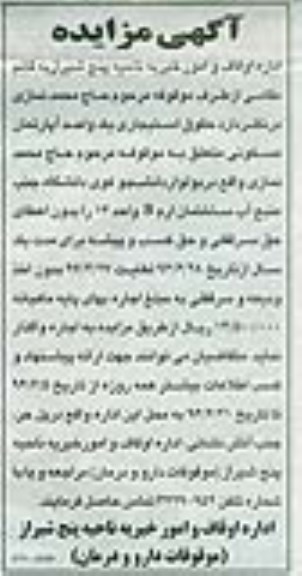 آگهی مزایده
اداره اوقاف و امور خیریه ناحیه پنج شیراز به قائم
مقامی از طرف موقوفه مرحوم حاج محمد نمازی
در نظر دارد حقوق استیجاری یک واحد آپارتمان
مسکونی متعلق به موقوفه مرحوم حاج محمد
نمازی واقع در بلوار دانشجو کوی دانشگاه جنب
منبع آب ساختمان ارم B واحد ۱۲ را بدون اعطای
حق سرقفلی و حق کسب و پیشه برای مدت یک
سال از تاریخ لغایت بدون اخذ
ودیعه و سرقفلی به مبلغ اجاره بهای پایه ماهیانه
ریال از طریق مزایده به اجاره واگذار
نماید. متقاضیان می توانند جهت ارائه پیشنهاد و
کسب اطلاعات بیشتر همه روزه از تاریخ
تا تاریخ به محل این اداره واقع در پل حر،
جنب آتش نشانی، اداره اوقاف و امور خیریه ناحیه
پنج شیراز (موقوفات دارو و درمان) مراجعه و یا با
شماره تلفن تماس حاصل فرمایند.
اداره اوقاف و امور خیریه ناحیه پنج شیراز
(موقوفات دارو و درمان)